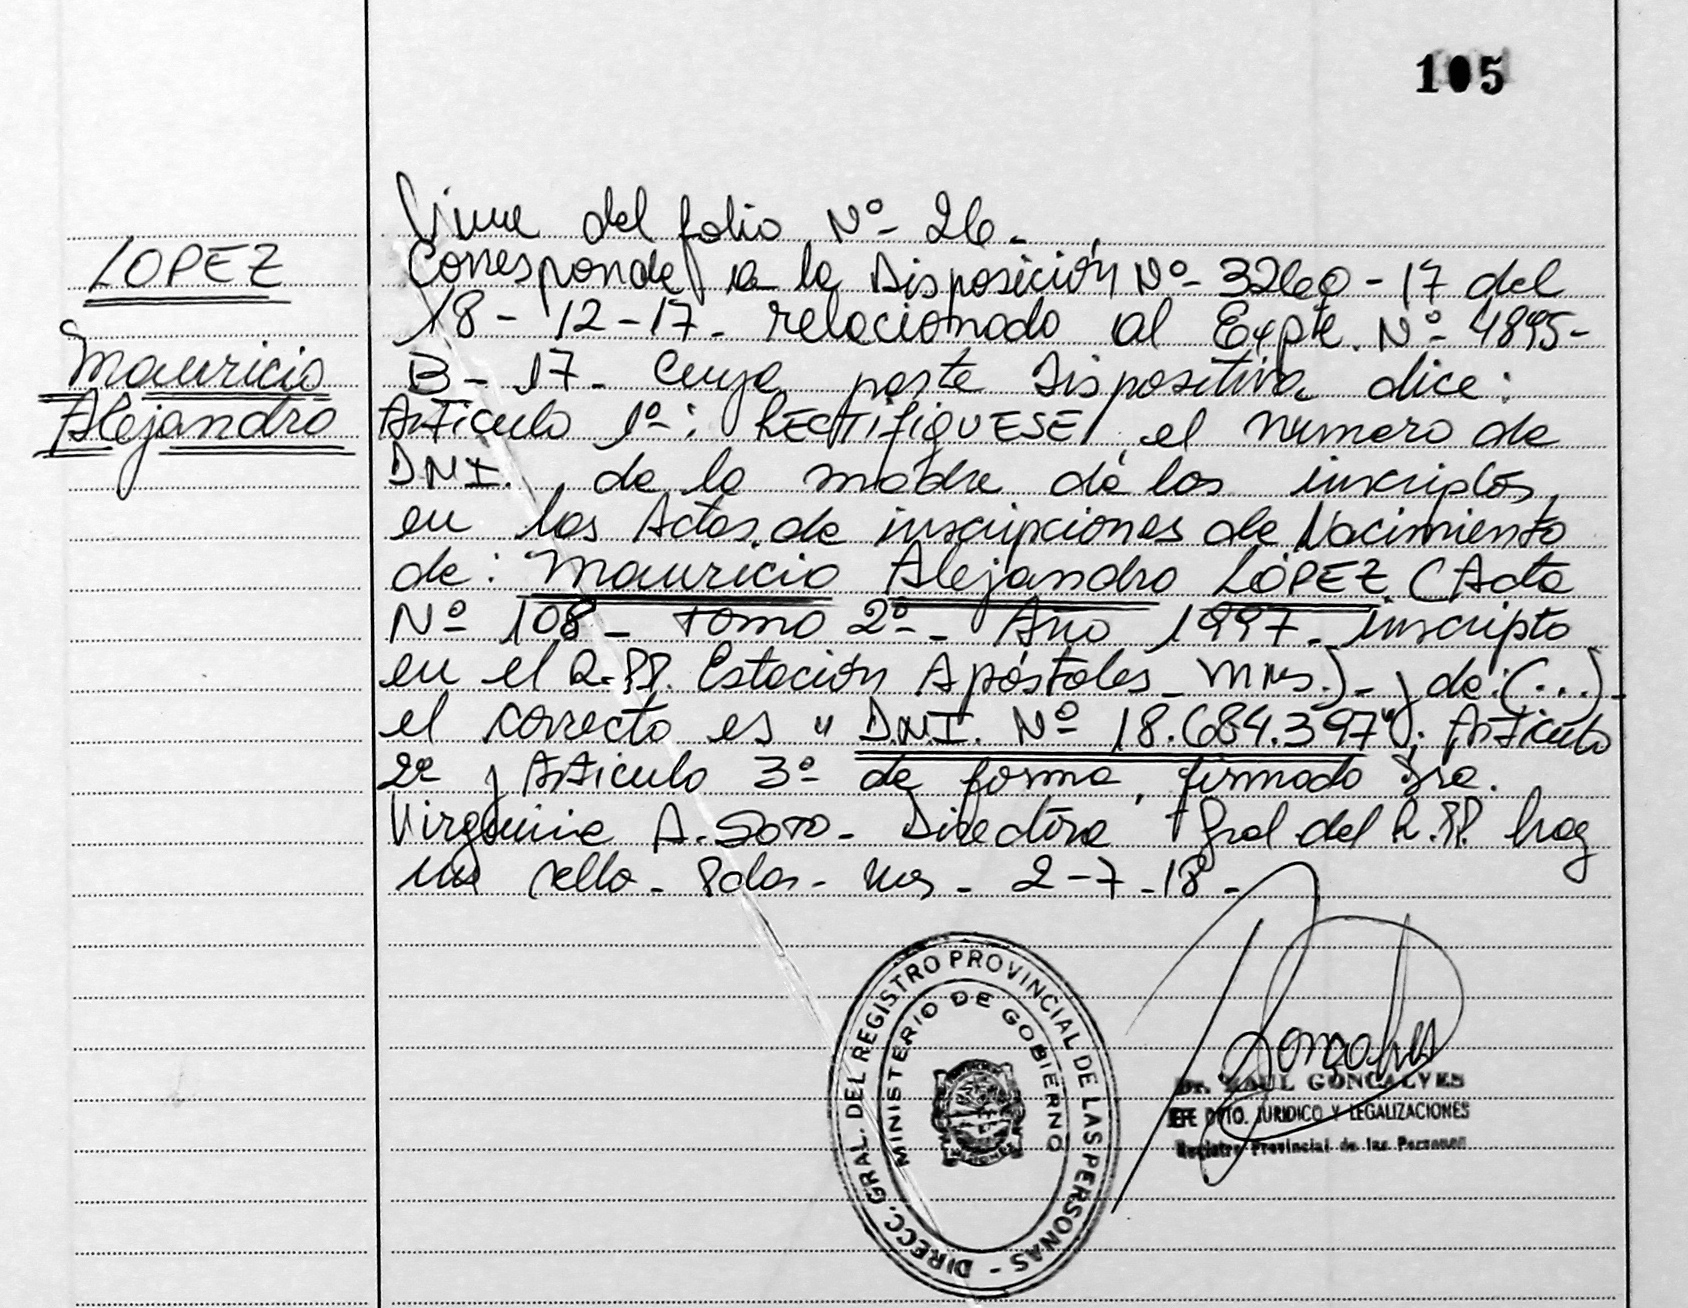 105
LOPEZ
Mauricio
Alejandro
Viene del folio Nº- 26-
Corresponde a la Disposición Nº- 3260-17 del
18-12-17- relacionado al Expte. Nº- 4895-
B-17- Cuya parte Dispositiva dice:
Artículo 1º: RECTIFIQUESE, el numero de
DNI. de la madre de los inscriptos,
en las Actas de inscripciones de Nacimiento
de: Mauricio Alejandro LÓPEZ (Acta
Nº 108- tomo 2º- Año 1997- inscripto
en el R.PP. Estación Apóstoles- Mnes.)- y de:(...)-
el correcto es "D.N.I. Nº 18.684.397"; Artículo
2º y Artículo 3º de forma, firmado Sra.
Virginia A. Soto- Directora Gral del R.PP. hay
un sello- Pdas- Mnes- 2-7-18-
DIRECC. GRAL. DEL REGISTRO PROVINCIAL DE LAS PERSONAS -
MINISTERIO DE GOBIERNO
MISIONES
Dr. RAUL GONCALVES
JEFE DPTO. JURIDICO Y LEGALIZACIONES
Registro Provincial de las Personas